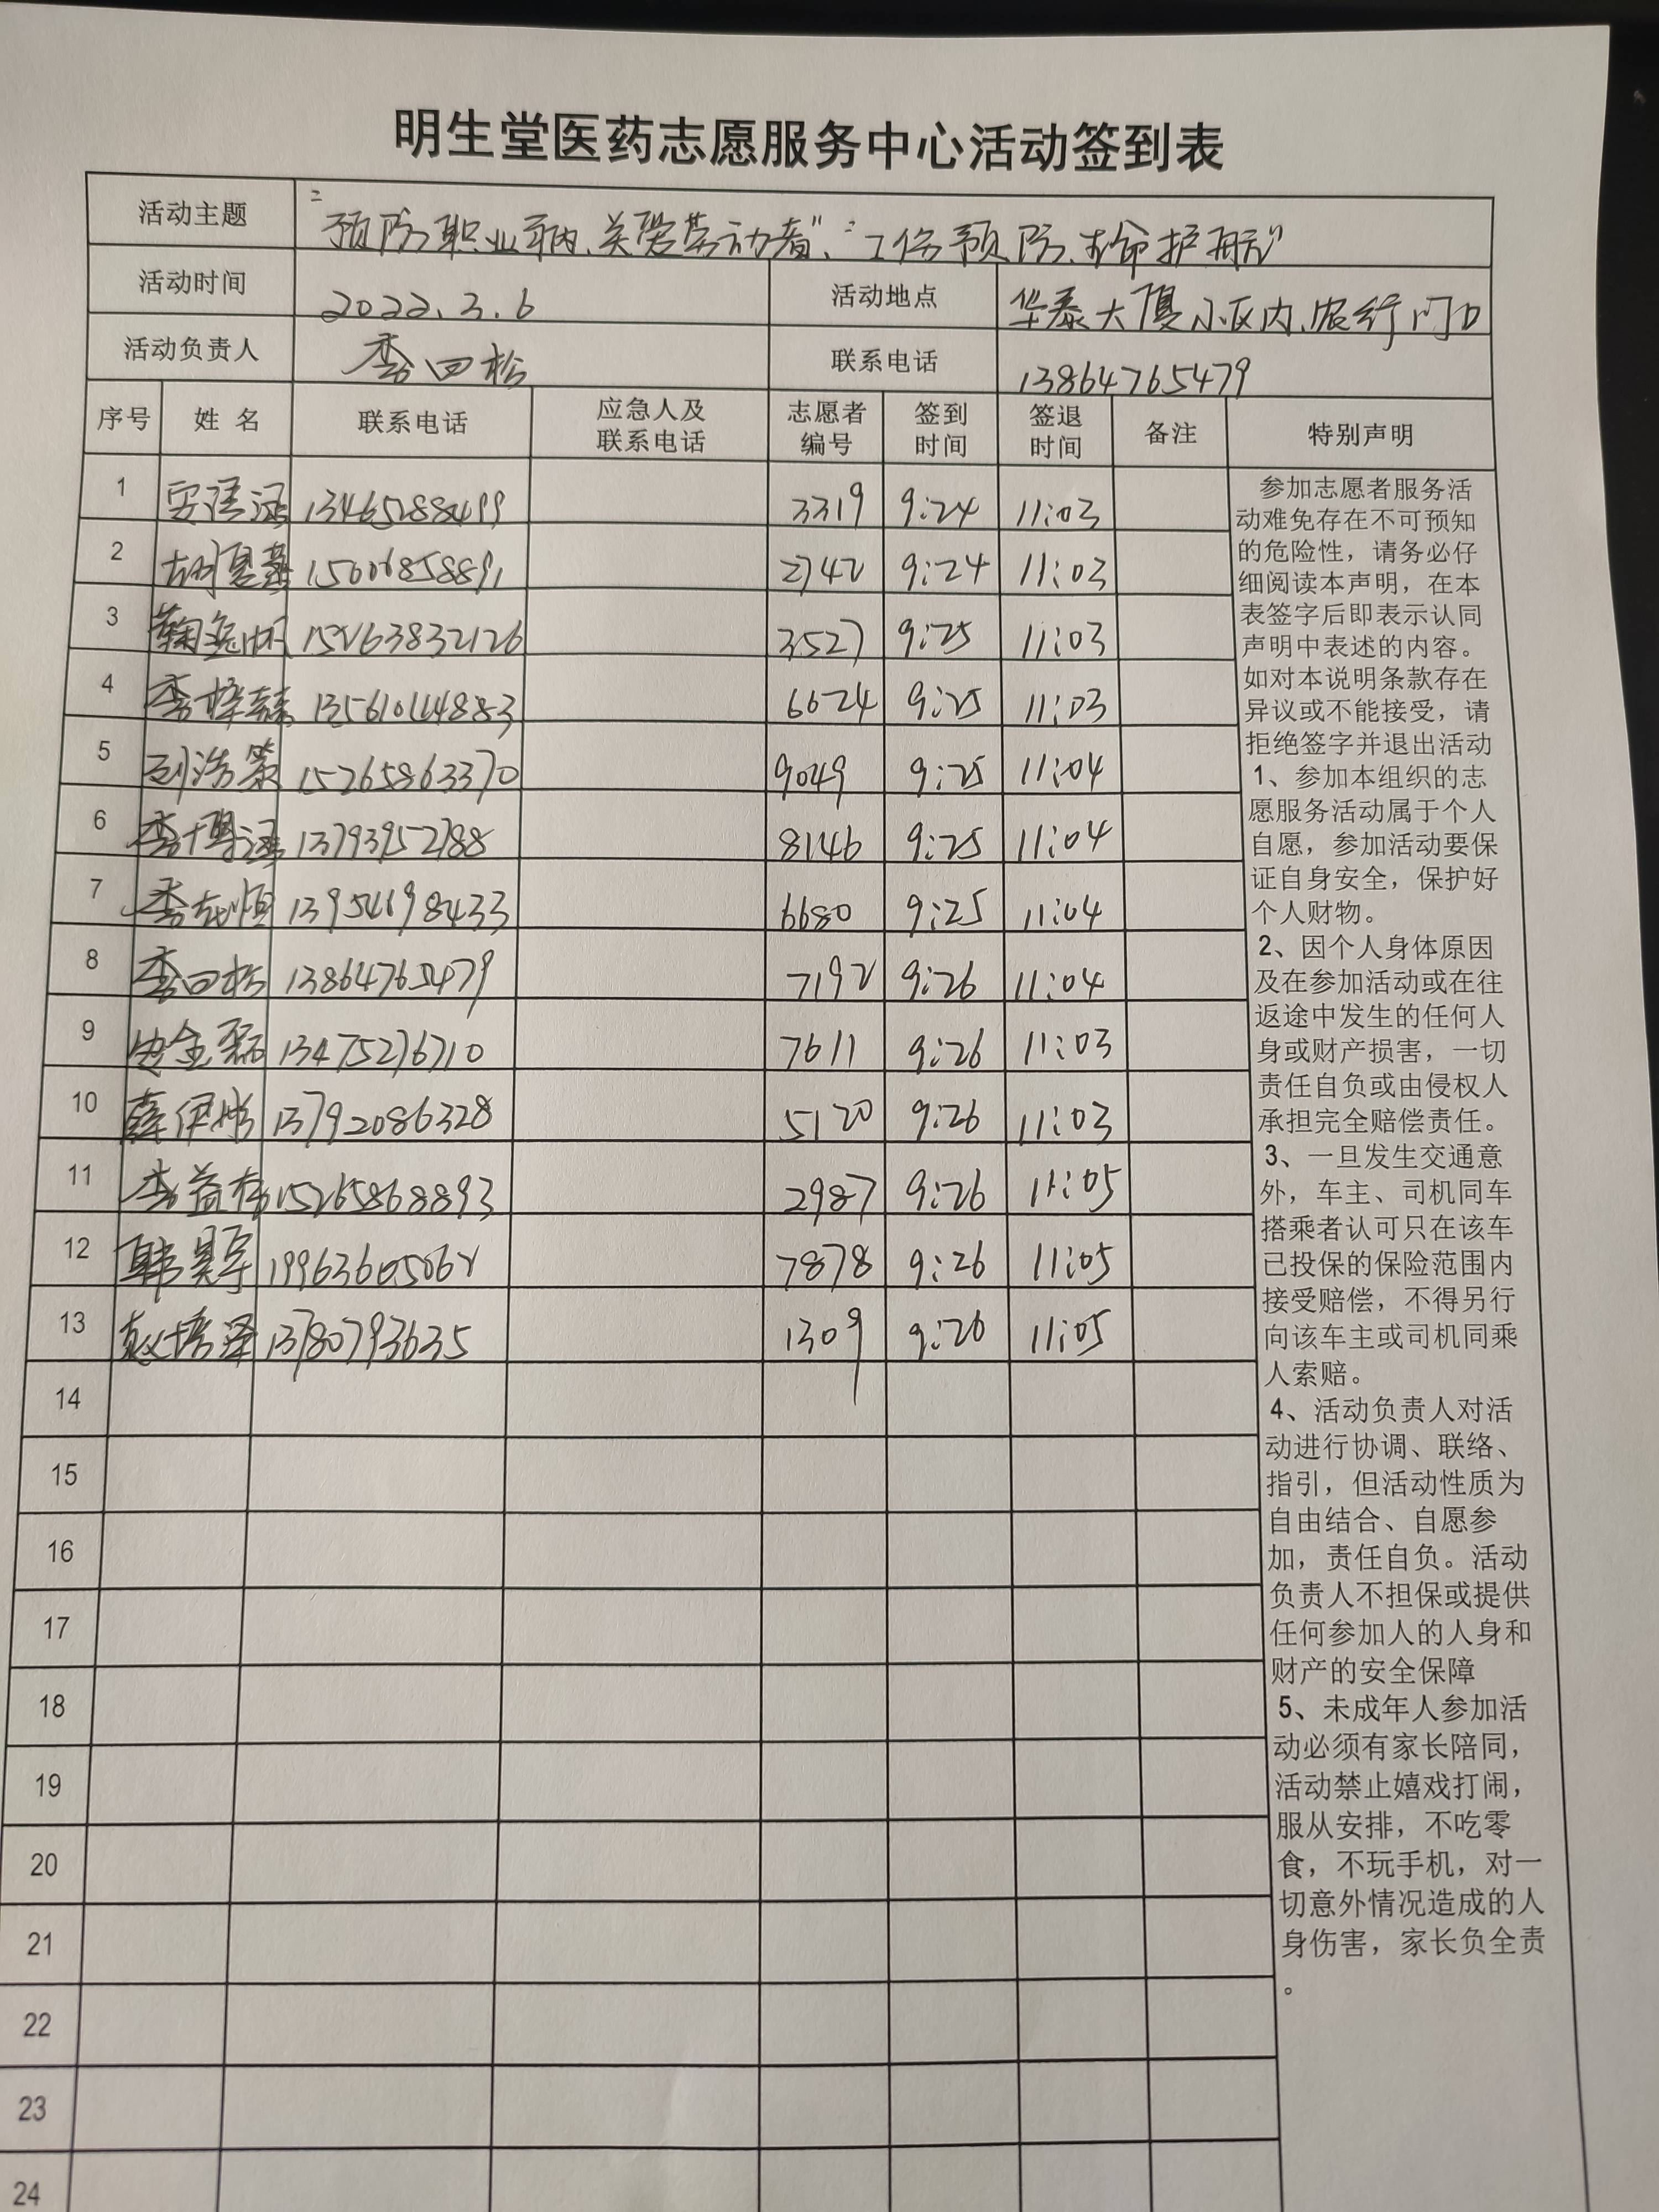 明生堂医药志愿服务中心活动签到表
活动主题 "预防职业病、关爱劳动者"、"工伤预防、生命护航"
活动时间 2022.3.6 活动地点 华泰大厦小区内、农行门口
活动负责人 李四松 联系电话 13864765479
序号 姓名 联系电话 应急人及联系电话 志愿者编号 签到时间 签退时间 备注 特别声明
1 13465288499 3319 9:24 11:03
2 15006858891 2742 9:24 11:03
3 15263832126 3527 9:25 11:03
4 6624 9:25 11:03
5 刘浩 15265863370 9049 9:25 11:04
6 李博涵 13793952788 8146 9:25 11:04
7 李 13954698433 6680 9:25 11:04
8 李四松 13864765479 7192 9:26 11:04
9 金磊 13475276710 7611 9:26 11:03
10 薛伊彤 13792086328 5120 9:26 11:03
11 李益存 15265868893 2987 9:26 11:05
12 韩昊宇 19963605062 7878 9:26 11:05
13 赵培泽 13780793635 1309 9:26 11:05
14
15
16
17
18
19
20
21
22
23
24
参加志愿者服务活
动难免存在不可预知
的危险性，请务必仔
细阅读本声明，在本
表签字后即表示认同
声明中表述的内容。
如对本说明条款存在
异议或不能接受，请
拒绝签字并退出活动
1、参加本组织的志
愿服务活动属于个人
自愿，参加活动要保
证自身安全，保护好
个人财物。
2、因个人身体原因
及在参加活动或在往
返途中发生的任何人
身或财产损害，一切
责任自负或由侵权人
承担完全赔偿责任。
3、一旦发生交通意
外，车主、司机同车
搭乘者认可只在该车
已投保的保险范围内
接受赔偿，不得另行
向该车主或司机同乘
人索赔。
4、活动负责人对活
动进行协调、联络、
指引，但活动性质为
自由结合、自愿参
加，责任自负。活动
负责人不担保或提供
任何参加人的人身和
财产的安全保障
5、未成年人参加活
动必须有家长陪同，
活动禁止嬉戏打闹，
服从安排，不吃零
食，不玩手机，对一
切意外情况造成的人
身伤害，家长负全责
。